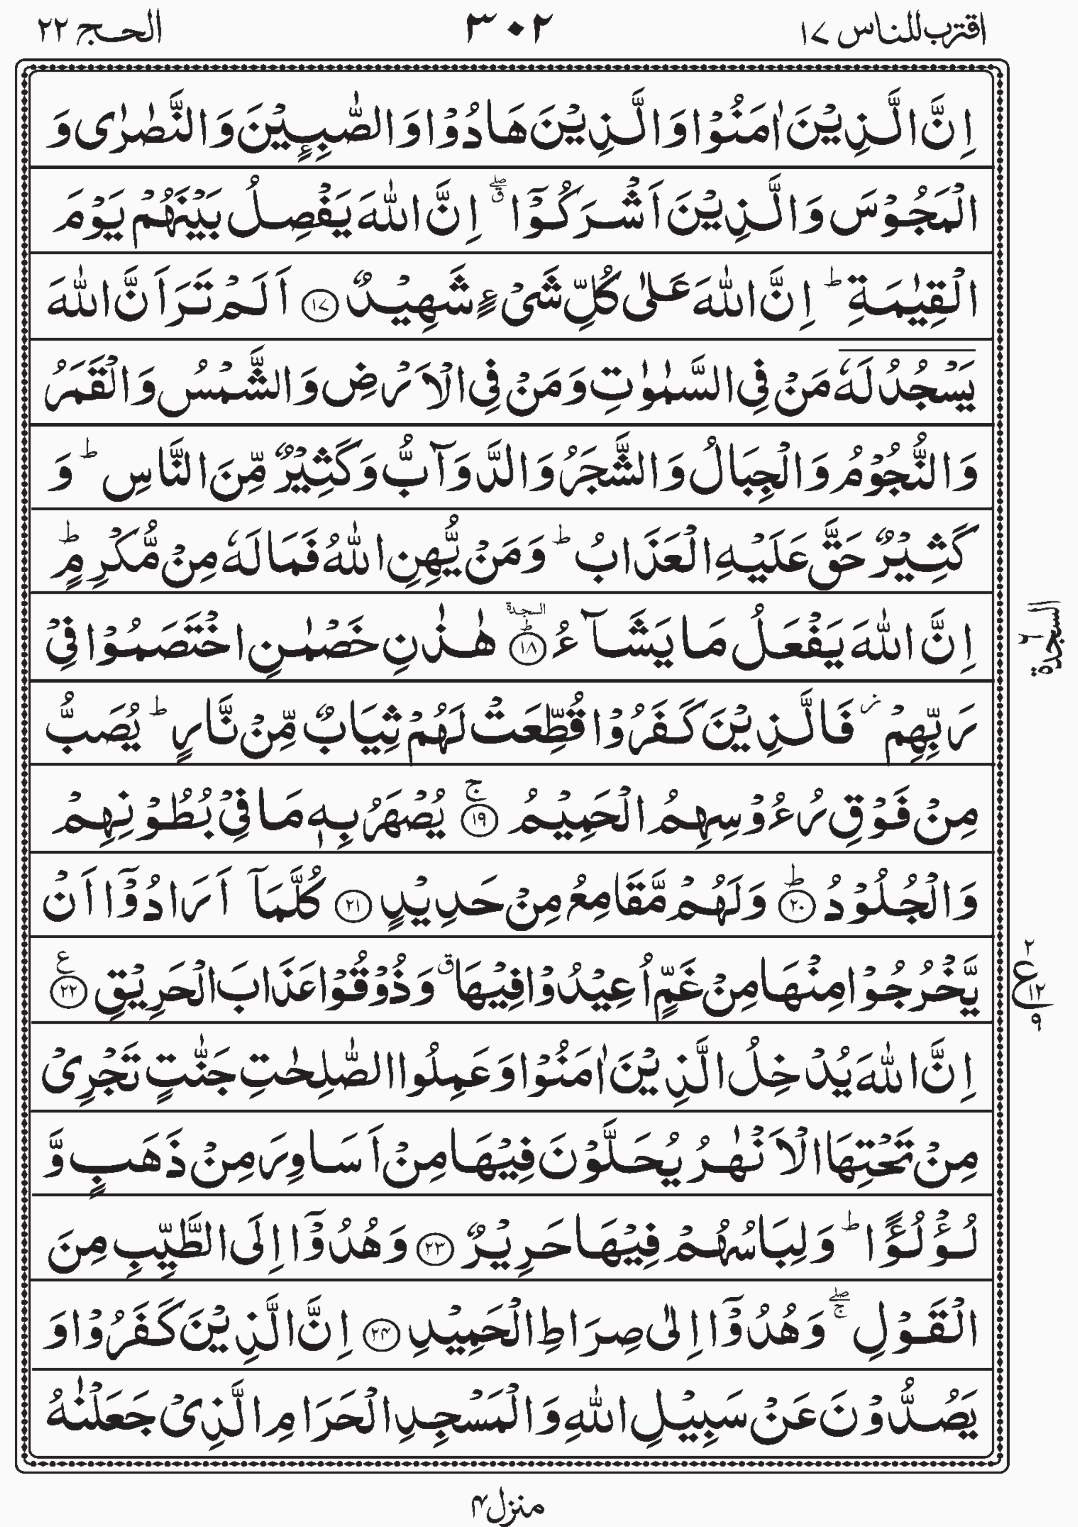 اقترب للناس ١٧
٣٠٢
الحج ٢٢
اِنَّ الَّذِيْنَ اٰمَنُوْا وَالَّذِيْنَ هَادُوْا وَالصّٰبِـِٕيْنَ وَالنَّصٰرٰى وَ
الْمَجُوْسَ وَالَّذِيْنَ اَشْرَكُوْٓا ۖق اِنَّ اللّٰهَ يَفْصِلُ بَيْنَهُمْ يَوْمَ
الْقِيٰمَةِ ؕ اِنَّ اللّٰهَ عَلٰى كُلِّ شَىْءٍ شَهِيْدٌ ﴿١٧﴾ اَلَمْ تَرَ اَنَّ اللّٰهَ
يَسْجُدُ لَهٗ مَنْ فِى السَّمٰوٰتِ وَمَنْ فِى الْاَرْضِ وَالشَّمْسُ وَالْقَمَرُ
وَالنُّجُوْمُ وَالْجِبَالُ وَالشَّجَرُ وَالدَّوَآبُّ وَكَثِيْرٌ مِّنَ النَّاسِ ؕ وَ
كَثِيْرٌ حَقَّ عَلَيْهِ الْعَذَابُ ؕ وَمَنْ يُّهِنِ اللّٰهُ فَمَا لَهٗ مِنْ مُّكْرِمٍ ؕ
اِنَّ اللّٰهَ يَفْعَلُ مَا يَشَآءُ ؕ السجدة ﴿١٨﴾ هٰذٰنِ خَصْمٰنِ اخْتَصَمُوْا فِىْ
السجدة ٦
رَبِّهِمْ ز فَالَّذِيْنَ كَفَرُوْا قُطِّعَتْ لَهُمْ ثِيَابٌ مِّنْ نَّارٍ ؕ يُصَبُّ
مِنْ فَوْقِ رُءُوْسِهِمُ الْحَمِيْمُ ۚ ﴿١٩﴾ يُصْهَرُ بِهٖ مَا فِىْ بُطُوْنِهِمْ
وَالْجُلُوْدُ ؕ ﴿٢٠﴾ وَلَهُمْ مَّقَامِعُ مِنْ حَدِيْدٍ ﴿٢١﴾ كُلَّمَآ اَرَادُوْٓا اَنْ
يَّخْرُجُوْا مِنْهَا مِنْ غَمٍّ اُعِيْدُوْا فِيْهَا ق وَذُوْقُوْا عَذَابَ الْحَرِيْقِ ع ﴿٢٢﴾
٢ ع ١٢ ٩
اِنَّ اللّٰهَ يُدْخِلُ الَّذِيْنَ اٰمَنُوْا وَعَمِلُوا الصّٰلِحٰتِ جَنّٰتٍ تَجْرِىْ
مِنْ تَحْتِهَا الْاَنْهٰرُ يُحَلَّوْنَ فِيْهَا مِنْ اَسَاوِرَ مِنْ ذَهَبٍ وَّ
لُؤْلُؤًا ؕ وَلِبَاسُهُمْ فِيْهَا حَرِيْرٌ ﴿٢٣﴾ وَهُدُوْٓا اِلَى الطَّيِّبِ مِنَ
الْقَوْلِ ۖۚ وَهُدُوْٓا اِلٰى صِرَاطِ الْحَمِيْدِ ﴿٢٤﴾ اِنَّ الَّذِيْنَ كَفَرُوْا وَ
يَصُدُّوْنَ عَنْ سَبِيْلِ اللّٰهِ وَالْمَسْجِدِ الْحَرَامِ الَّذِىْ جَعَلْنٰهُ
منزل ٤